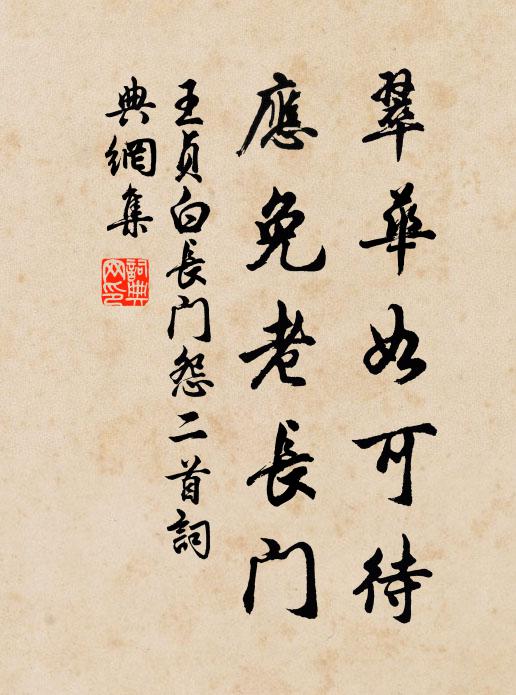 翠華如可待
應免老長門
王貞白長門怨二首詞
典網集
詞典網印